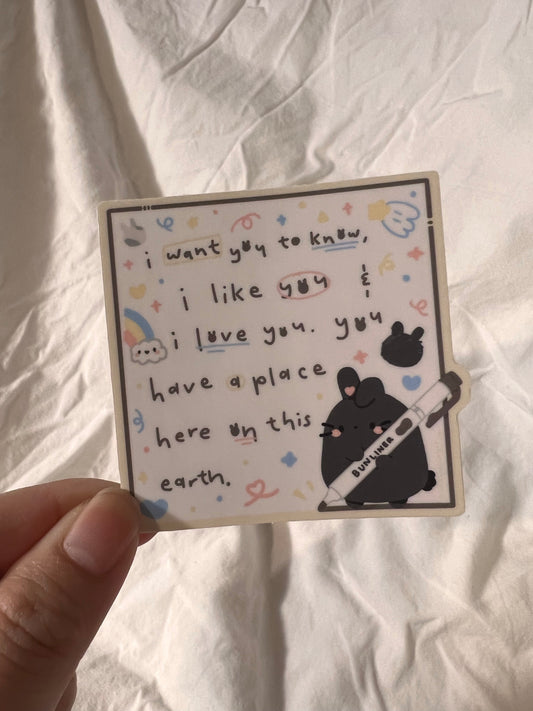 i want you to know,
i like you &
i love you. you
have a place
here on this
earth.
BUNLINER